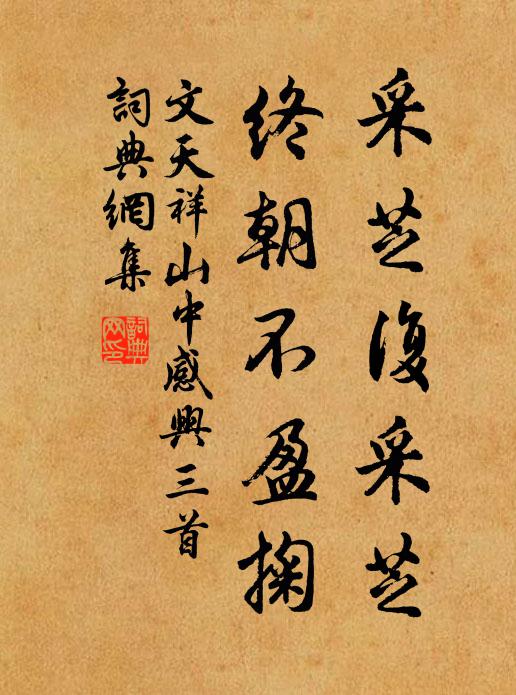 采芝復采芝
終朝不盈掬
文天祥山中感興三首
詞典網集
詞典網印